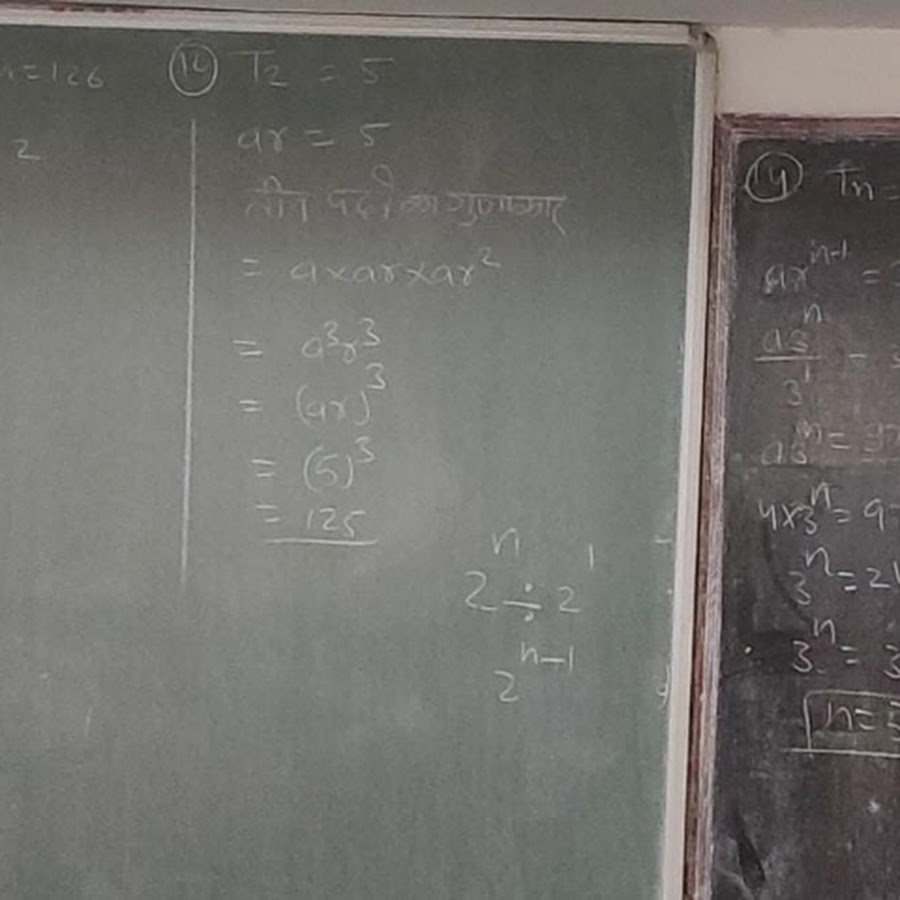 n=126
2
(12) T2 = 5
ar = 5
तीन पदों का गुणाकार
= a×ar×ar²
= a³r³
= (ar)³
= (5)³
= 125
2ⁿ ÷ 2¹
2ⁿ⁻¹
(14) Tn =
arⁿ⁻¹ =
a3ⁿ/3¹ =
a3ⁿ = 97
4×3ⁿ = 9
3ⁿ = 2
3ⁿ = 3
n=5